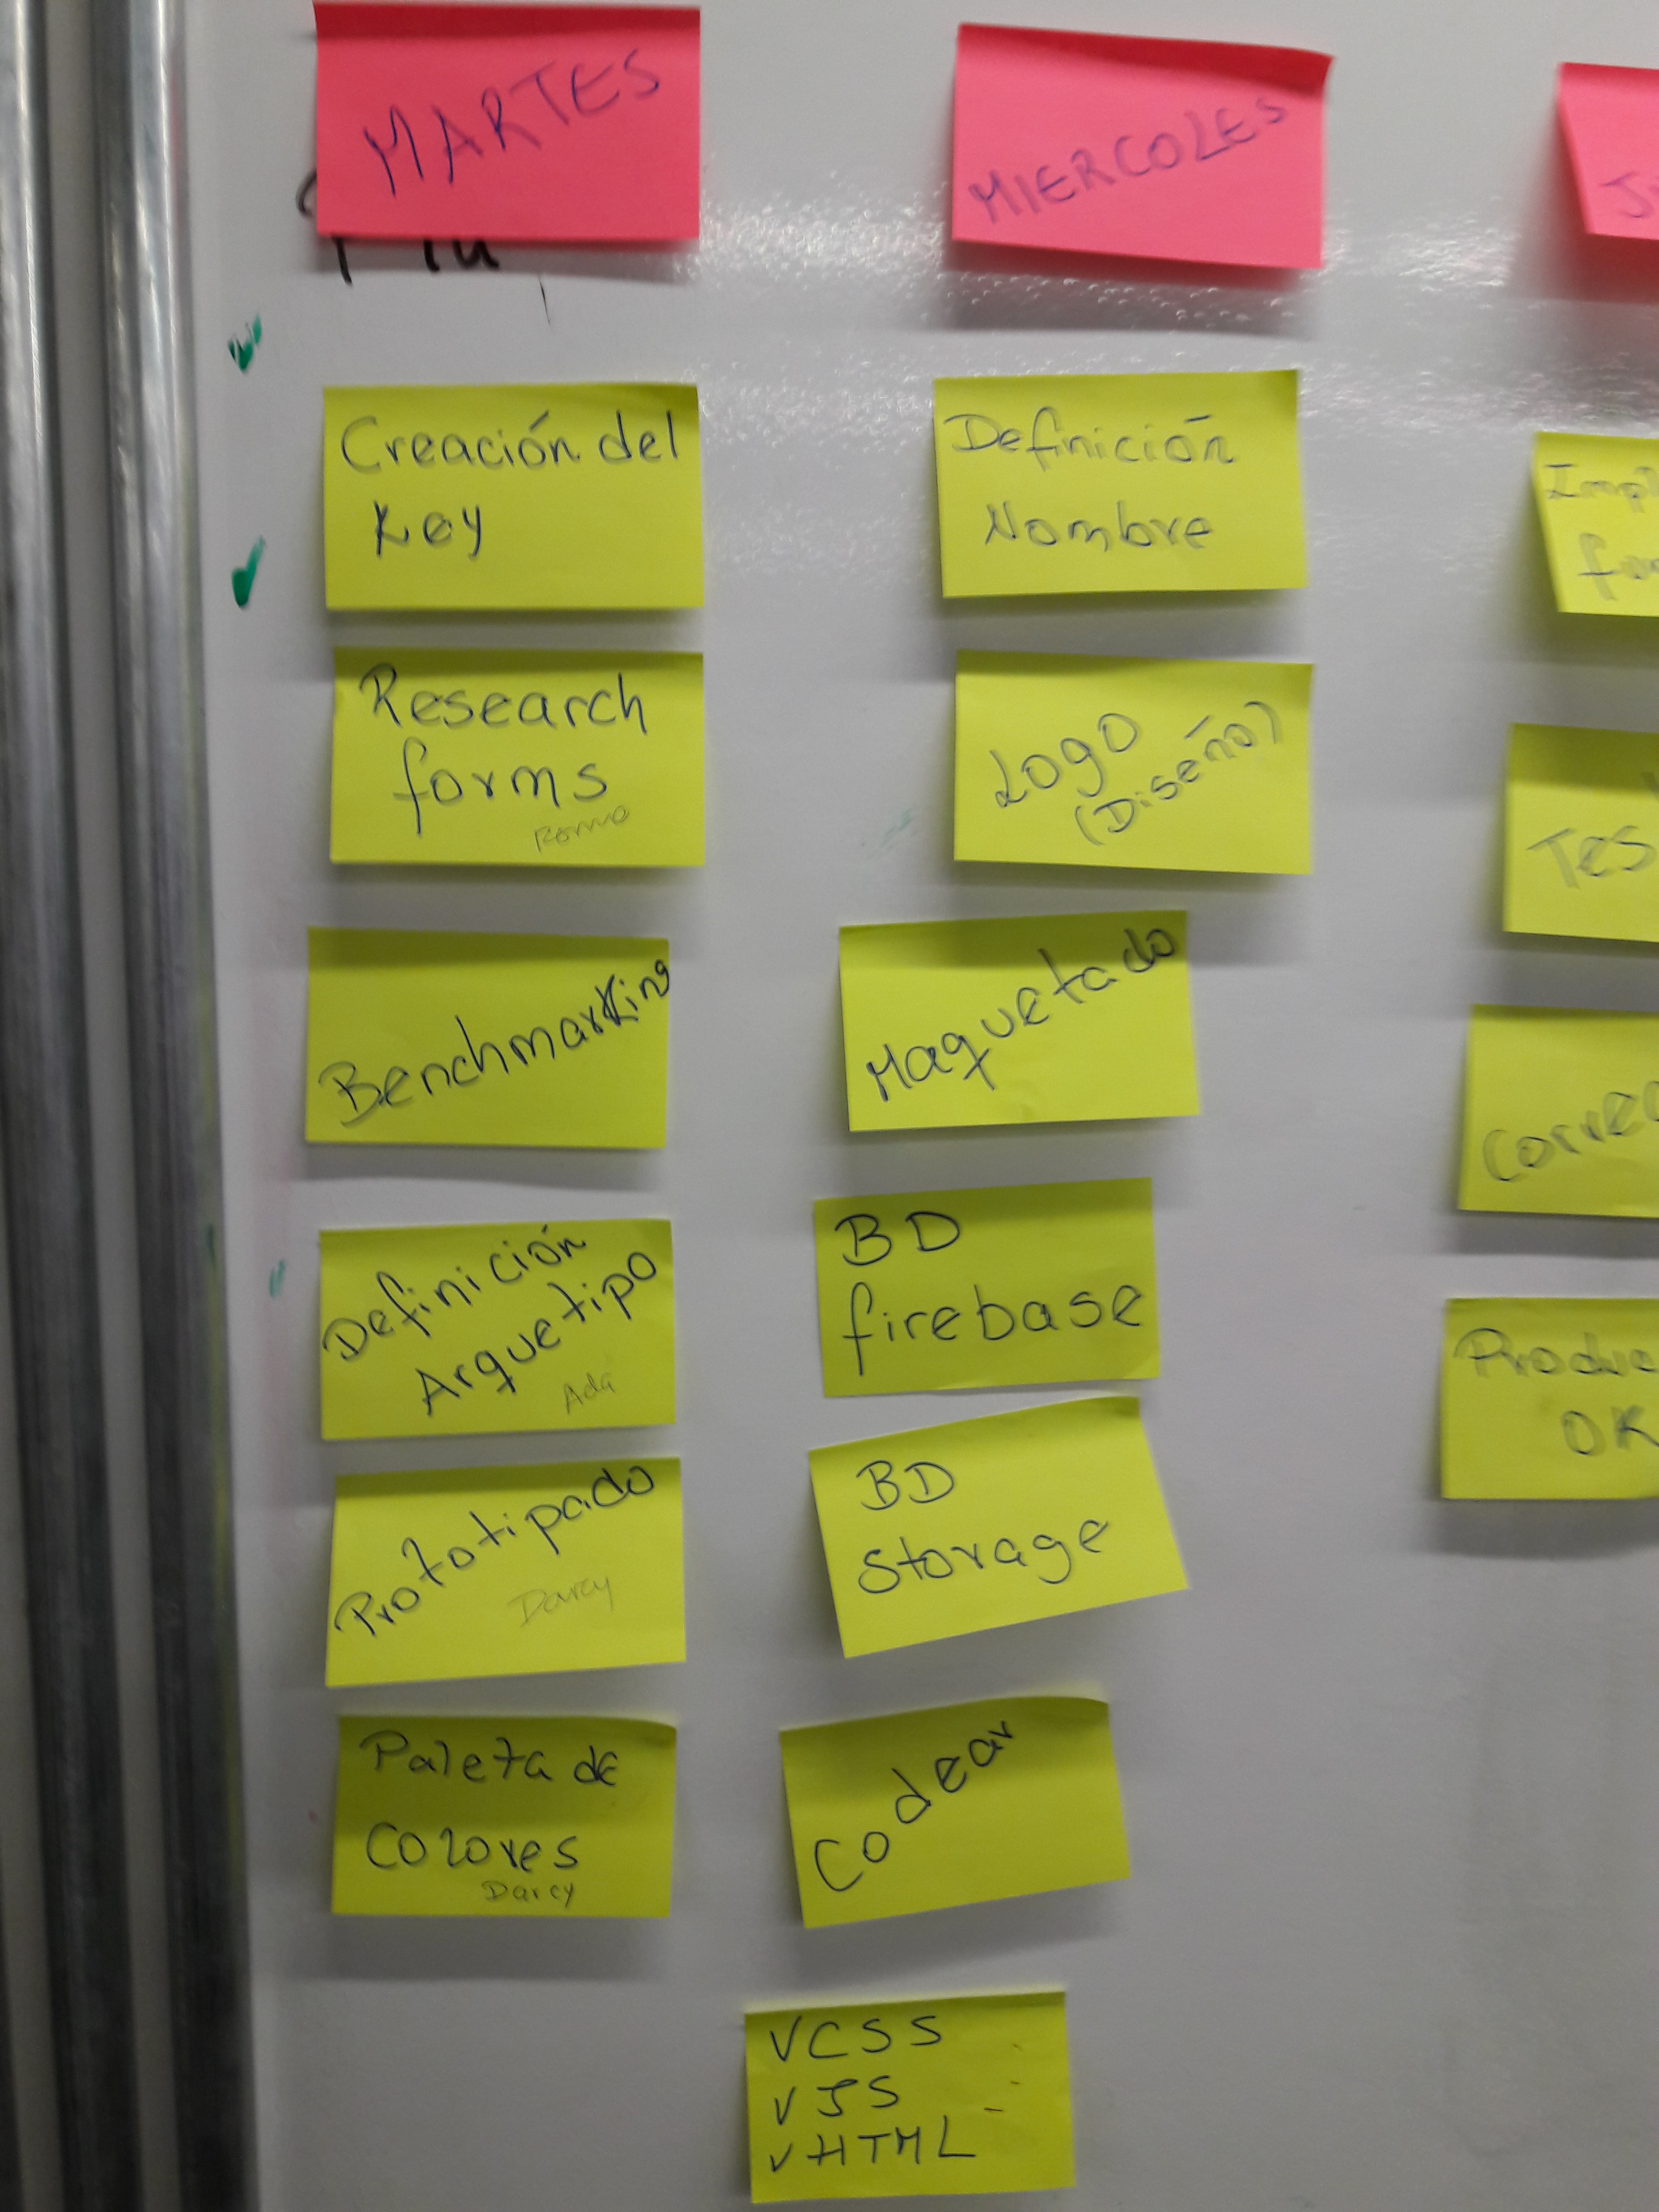 MARTES
Creación del
Key
Research
forms
Benchmarking
Definición
Arquetipo
Ada
Prototipado
Darcy
Paleta de
Colores
Darcy
MIERCOLES
Definición
Nombre
Logo
(Diseño)
Maquetado
BD
firebase
BD
Storage
Codear
VCSS
VJS
VHTML
J
Imp
Tes
Correc
Produc
OK